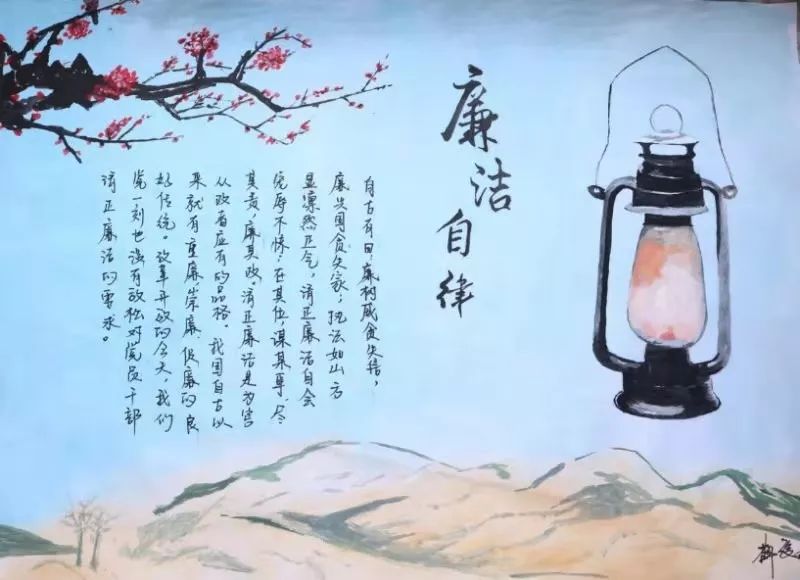 廉洁自律
自古有曰，廉树威贪失信，
廉兴国贪失家；执法如山方
显凛然正气，清正廉洁自会
宠辱不惊；在其位，谋其事，尽
其责，廉其政。清正廉洁是为官
从政者应有的品格。我国自古以
来就有重廉、崇廉、促廉的良
好传统。改革开放的今天，我们
党一刻也没有放松对党员干部
清正廉洁的要求。